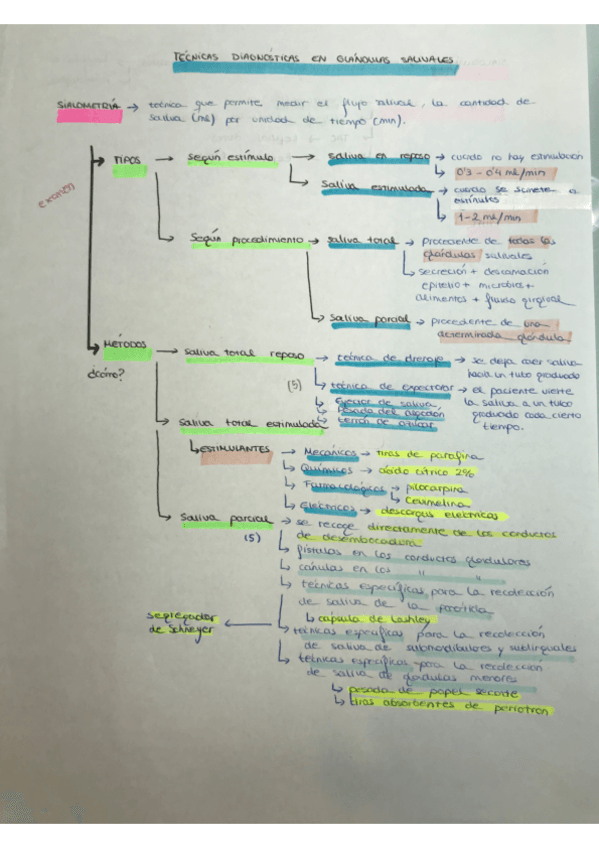 TÉCNICAS DIAGNÓSTICAS EN GLÁNDULAS SALIVALES
SIALOMETRÍA → técnica que permite medir el flujo salival, la cantidad de
saliva (ml) por unidad de tiempo (min).
examen
→ TIPOS → según estímulo → saliva en reposo → cuando no hay estimulación
↳ 0'3 - 0'4 ml/min
↳ saliva estimulada → cuando se somete a
estímulos
↳ 1-2 ml/min
↳ según procedimiento → saliva total → procedente de todas las
glándulas salivales
↳ secreción + descamación
epitelio + microbios +
alimentos + fluido gingival
↳ saliva parcial → procedente de una
determinada glándula
→ MÉTODOS → saliva total reposo → técnica de drenaje → se deja caer saliva
¿cómo? hacia un tubo graduado
(5) ↳ técnica de expectorar → el paciente vierte
↳ eyector de saliva la saliva a un tubo
↳ pesada del algodón graduado cada cierto
↳ terrón de azúcar tiempo.
↳ saliva total estimulada
↳ ESTIMULANTES → Mecánicos → tiras de parafina
↳ Químicos → ácido cítrico 2%
↳ Farmacológicos → pilocarpina
↳ Cevimelina
↳ Eléctricos → descargas eléctricas
↳ saliva parcial → se recoge directamente de los conductos
(5) de desembocadura
↳ fístulas en los conductos glandulares
↳ cánulas en los " "
↳ técnicas específicas para la recolección
de saliva de la parótida
↳ cápsula de Lashley
segregador ← técnicas específicas para la recolección
de Schneyer de saliva de submandibulares y sublinguales
↳ técnicas específicas para la recolección
de saliva de glándulas menores
↳ pesada de papel secante
↳ tiras absorbentes de periotron